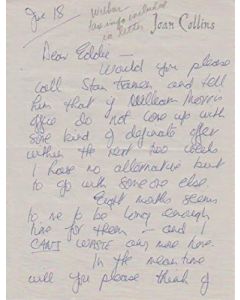 Jan 18
Wilbur
tax info included
in letter
Joan Collins
Dear Eddie -
Would you please
call Stan and tell
him that if William Morris
office do not come up with
some kind of definate offer
within the next two weeks
I have no alternative but
to go with someone else
Eight months seems
to me to be long enough
time for them - and I
CAN'T WASTE any more time.
In the meantime
will you please think of